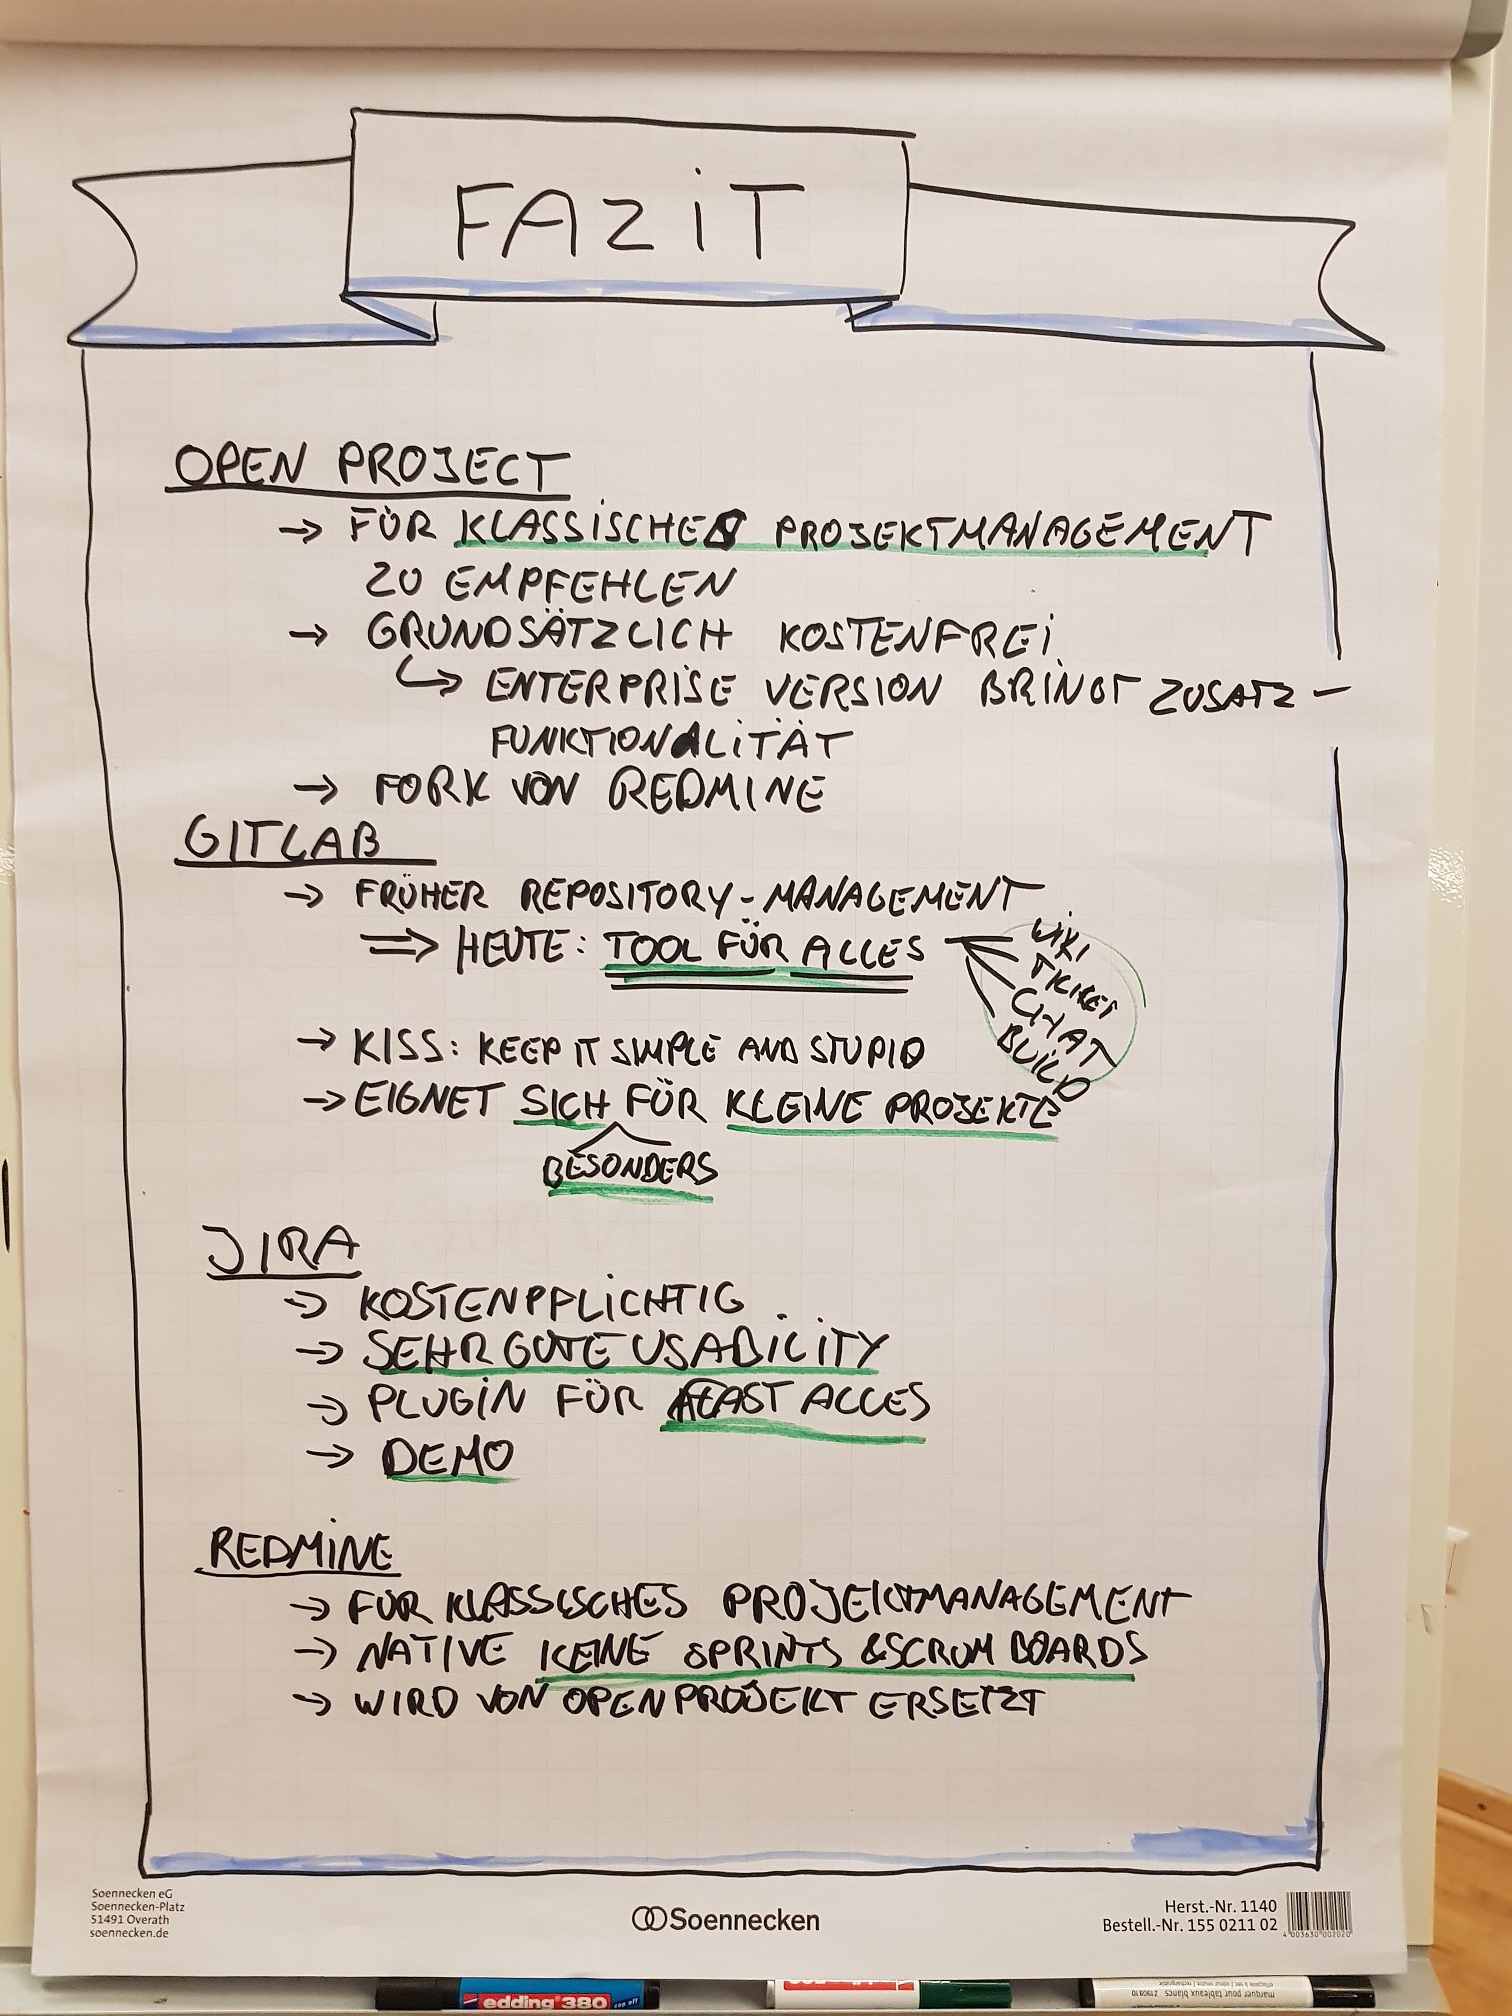 FAZiT
OPEN PROJECT
→ FÜR KLASSiSCHES PROJEKTMANAGEMENT
ZU EMPFEHLEN
→ GRUNDSÄTZLICH KOSTENFREi
↳ ENTERPRiSE VERSION BRINGT ZUSATZ-
FUNKTIONALiTÄT
→ FORK VON REDMINE
GITLAB
→ FRÜHER REPOSITORY-MANAGEMENT
⇒ HEUTE: TOOL FÜR ALLES
WiKi
TICKET
CHAT
BUILD
→ KISS: KEEP IT SIMPLE AND STUPID
→ EIGNET SICH FÜR KLEINE PROJEKTE
BESONDERS
JIRA
→ KOSTENPFLiCHTIG
→ SEHR GUTE USABiLiTY
→ PLUGiN FÜR FAST ALLES
→ DEMO
REDMiNE
→ FÜR KLASSISCHES PROJEKTMANAGEMENT
→ NATIVE KEINE SPRINTS & SCRUM BOARDS
→ WIRD VON OPENPROJEKT ERSETZT
Soennecken eG
Soennecken-Platz
51491 Overath
soennecken.de
Soennecken
Herst.-Nr. 1140
Bestell.-Nr. 155 0211 02
4 003630 002020
edding 380 cap off
marqueur pour tableaux blancs